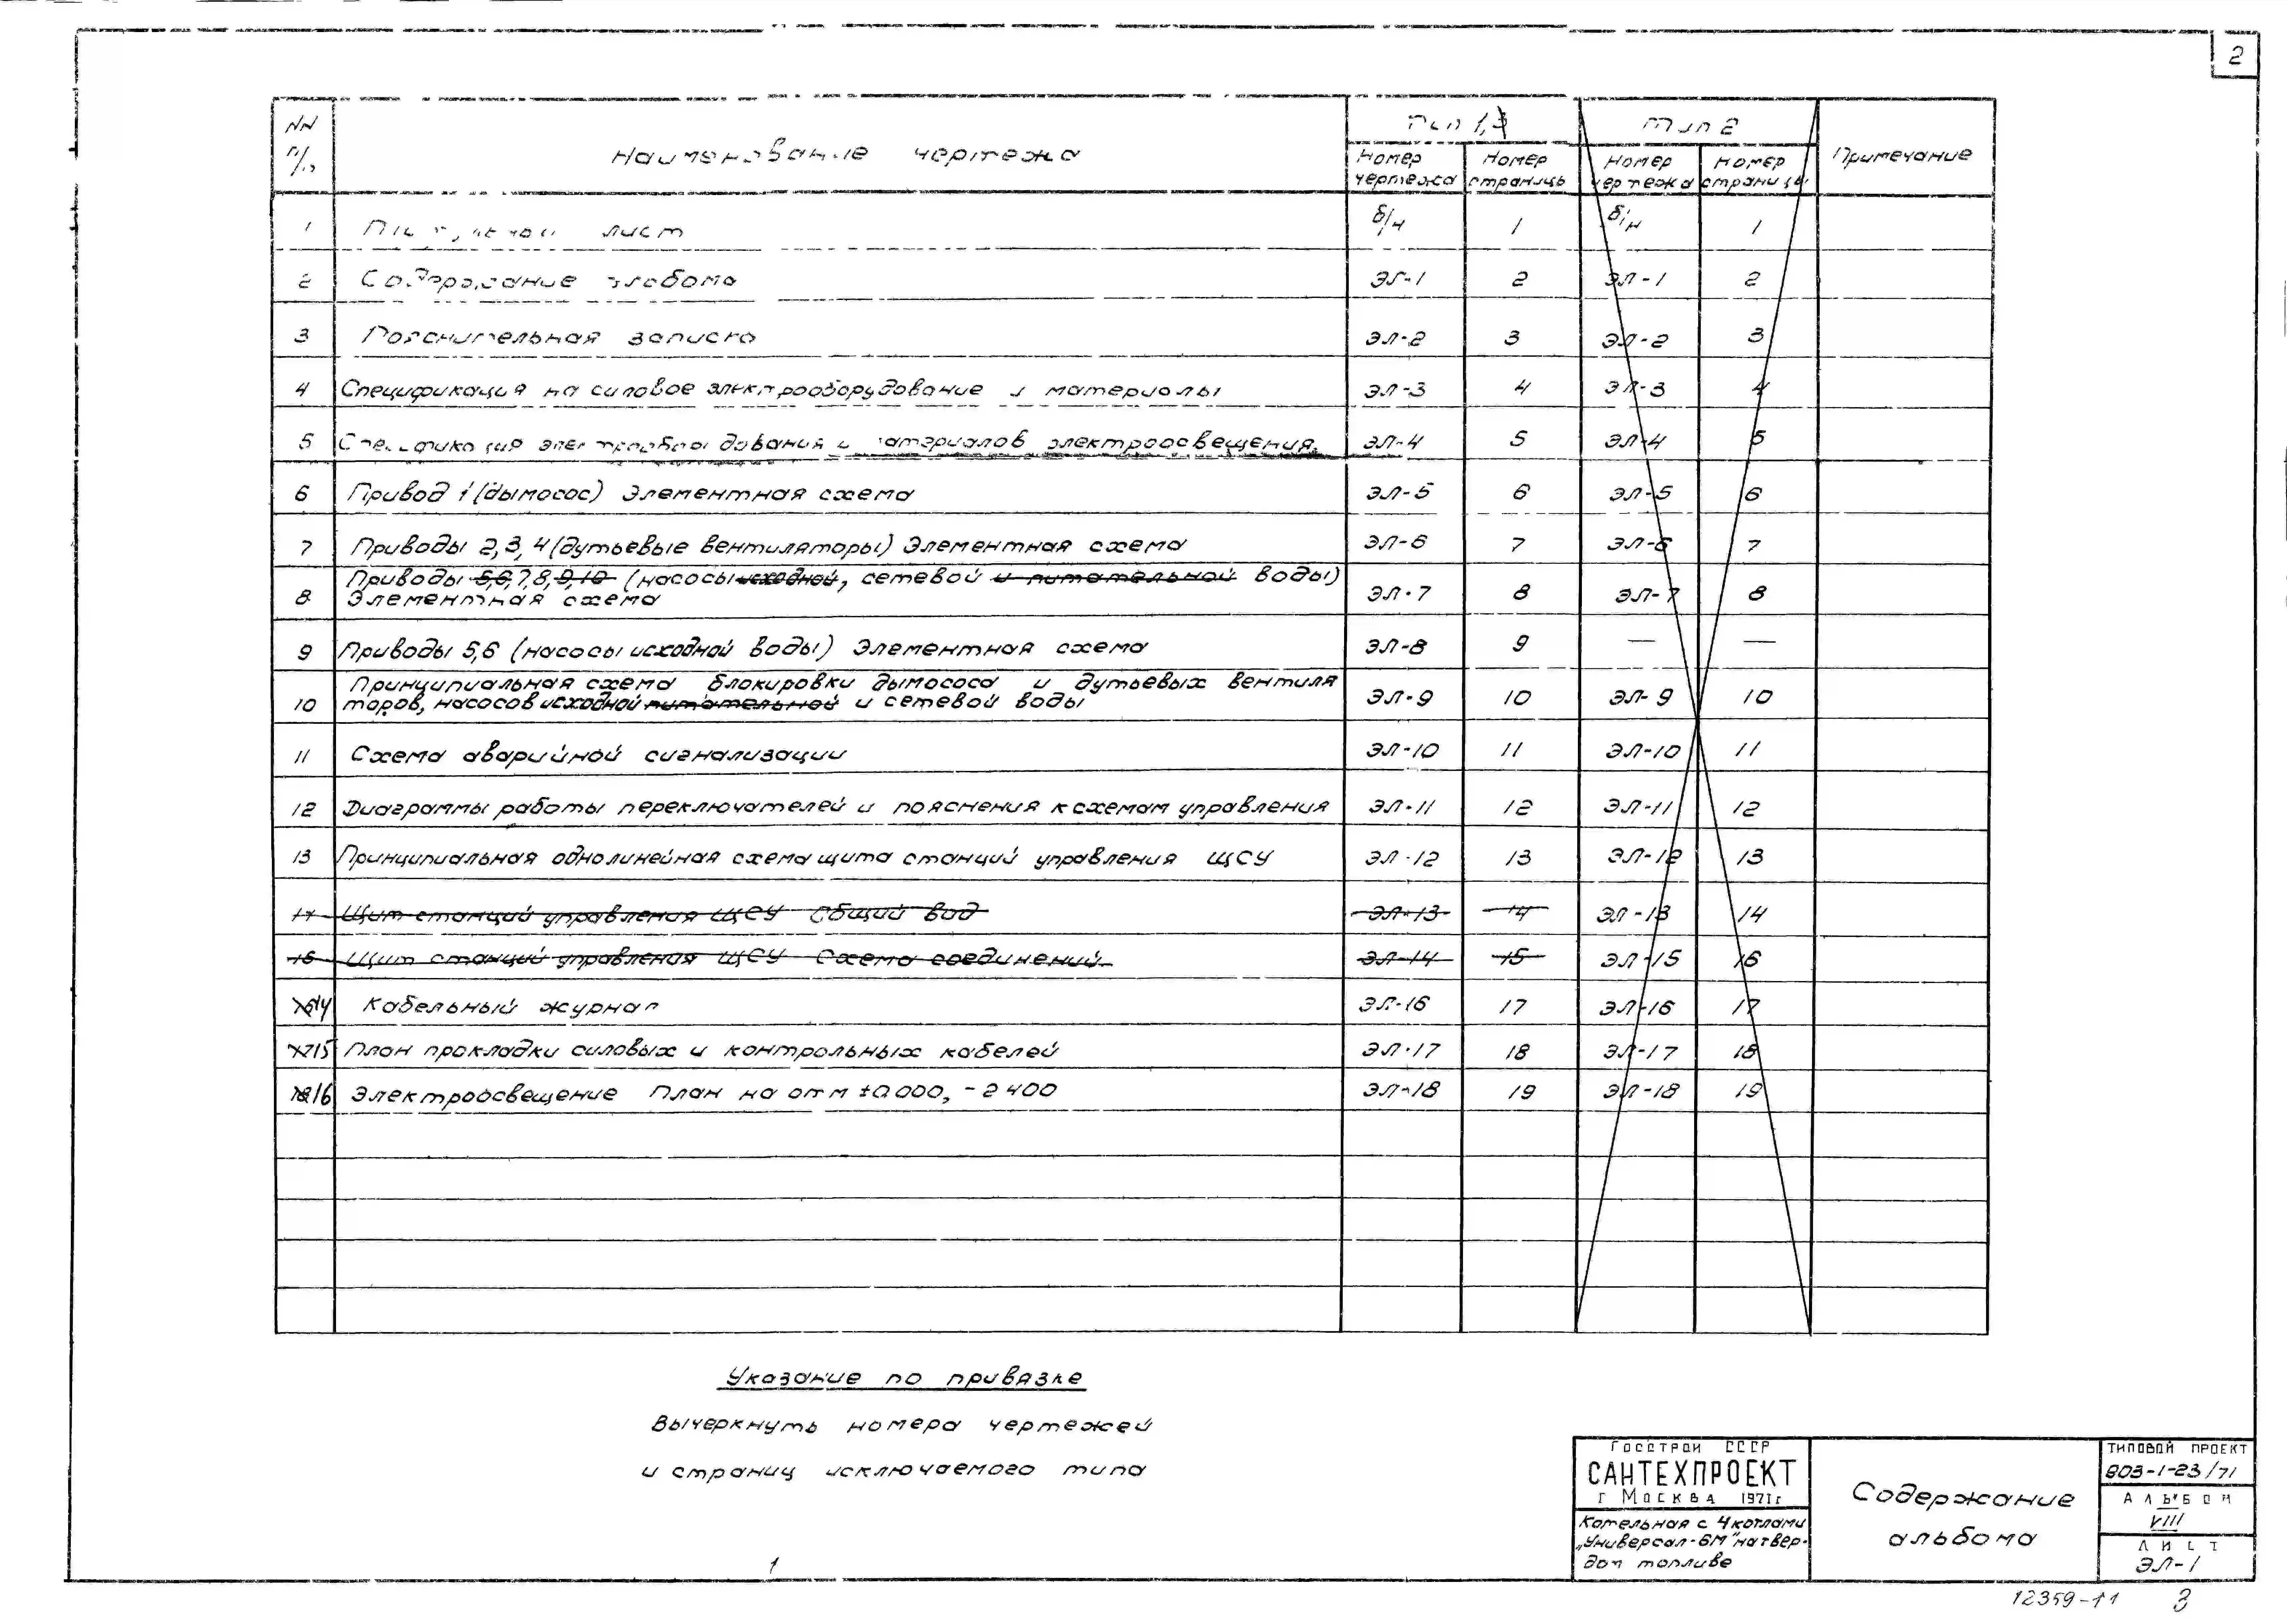 2
NN п/п Наименование чертежа Тип 1,3 Тип 2 Примечание
Номер чертежа Номер страницы Номер чертежа Номер страницы
1 лист б/н 1 б/н 1
2 Содержание альбома ЭЛ-1 2 ЭЛ-1 2
3 Пояснительная записка ЭЛ-2 3 ЭЛ-2 3
4 Спецификация на силовое электрооборудование и материалы ЭЛ-3 4 ЭЛ-3 4
5 Спецификация электрооборудования и материалов электроосвещения. ЭЛ-4 5 ЭЛ-4 5
6 Привод 1 (дымосос) Элементная схема ЭЛ-5 6 ЭЛ-5 6
7 Приводы 2,3,4 (дутьевые вентиляторы) Элементная схема ЭЛ-6 7 ЭЛ-6 7
Приводы 5,6,7,8,9,10 (насосы исходной, сетевой и питательной воды)
8 Элементная схема ЭЛ-7 8 ЭЛ-7 8
9 Приводы 5,6 (насосы исходной воды) Элементная схема ЭЛ-8 9 — —
Принципиальная схема блокировки дымососа и дутьевых вентиля
10 торов, насосов исходной питательной и сетевой воды ЭЛ-9 10 ЭЛ-9 10
11 Схема аварийной сигнализации ЭЛ-10 11 ЭЛ-10 11
12 Диаграммы работы переключателей и пояснения к схемам управления ЭЛ-11 12 ЭЛ-11 12
13 Принципиальная однолинейная схема щита станций управления ЩСУ ЭЛ-12 13 ЭЛ-12 13
14 Щит станций управления ЩСУ Общий вид ЭЛ-13 14 ЭЛ-13 14
15 Щит станций управления ЩСУ Схема соединений. ЭЛ-14 15 ЭЛ-15 16
14 Кабельный журнал ЭЛ-16 17 ЭЛ-16 17
15 План прокладки силовых и контрольных кабелей ЭЛ-17 18 ЭЛ-17 18
16 Электроосвещение План на отм ±0.000, -2 400 ЭЛ-18 19 ЭЛ-18 19
Указание по привязке
Вычеркнуть номера чертежей
и страниц исключаемого типа
Госстрой СССР
САНТЕХПРОЕКТ
г Москва 1971г
Котельная с 4 котлами
„Универсал-6М" на твер-
дом топливе
Содержание
альбома
ТИПОВОЙ ПРОЕКТ
903-1-23/71
Альбом
VIII
Лист
ЭЛ-1
1
12359-11 3